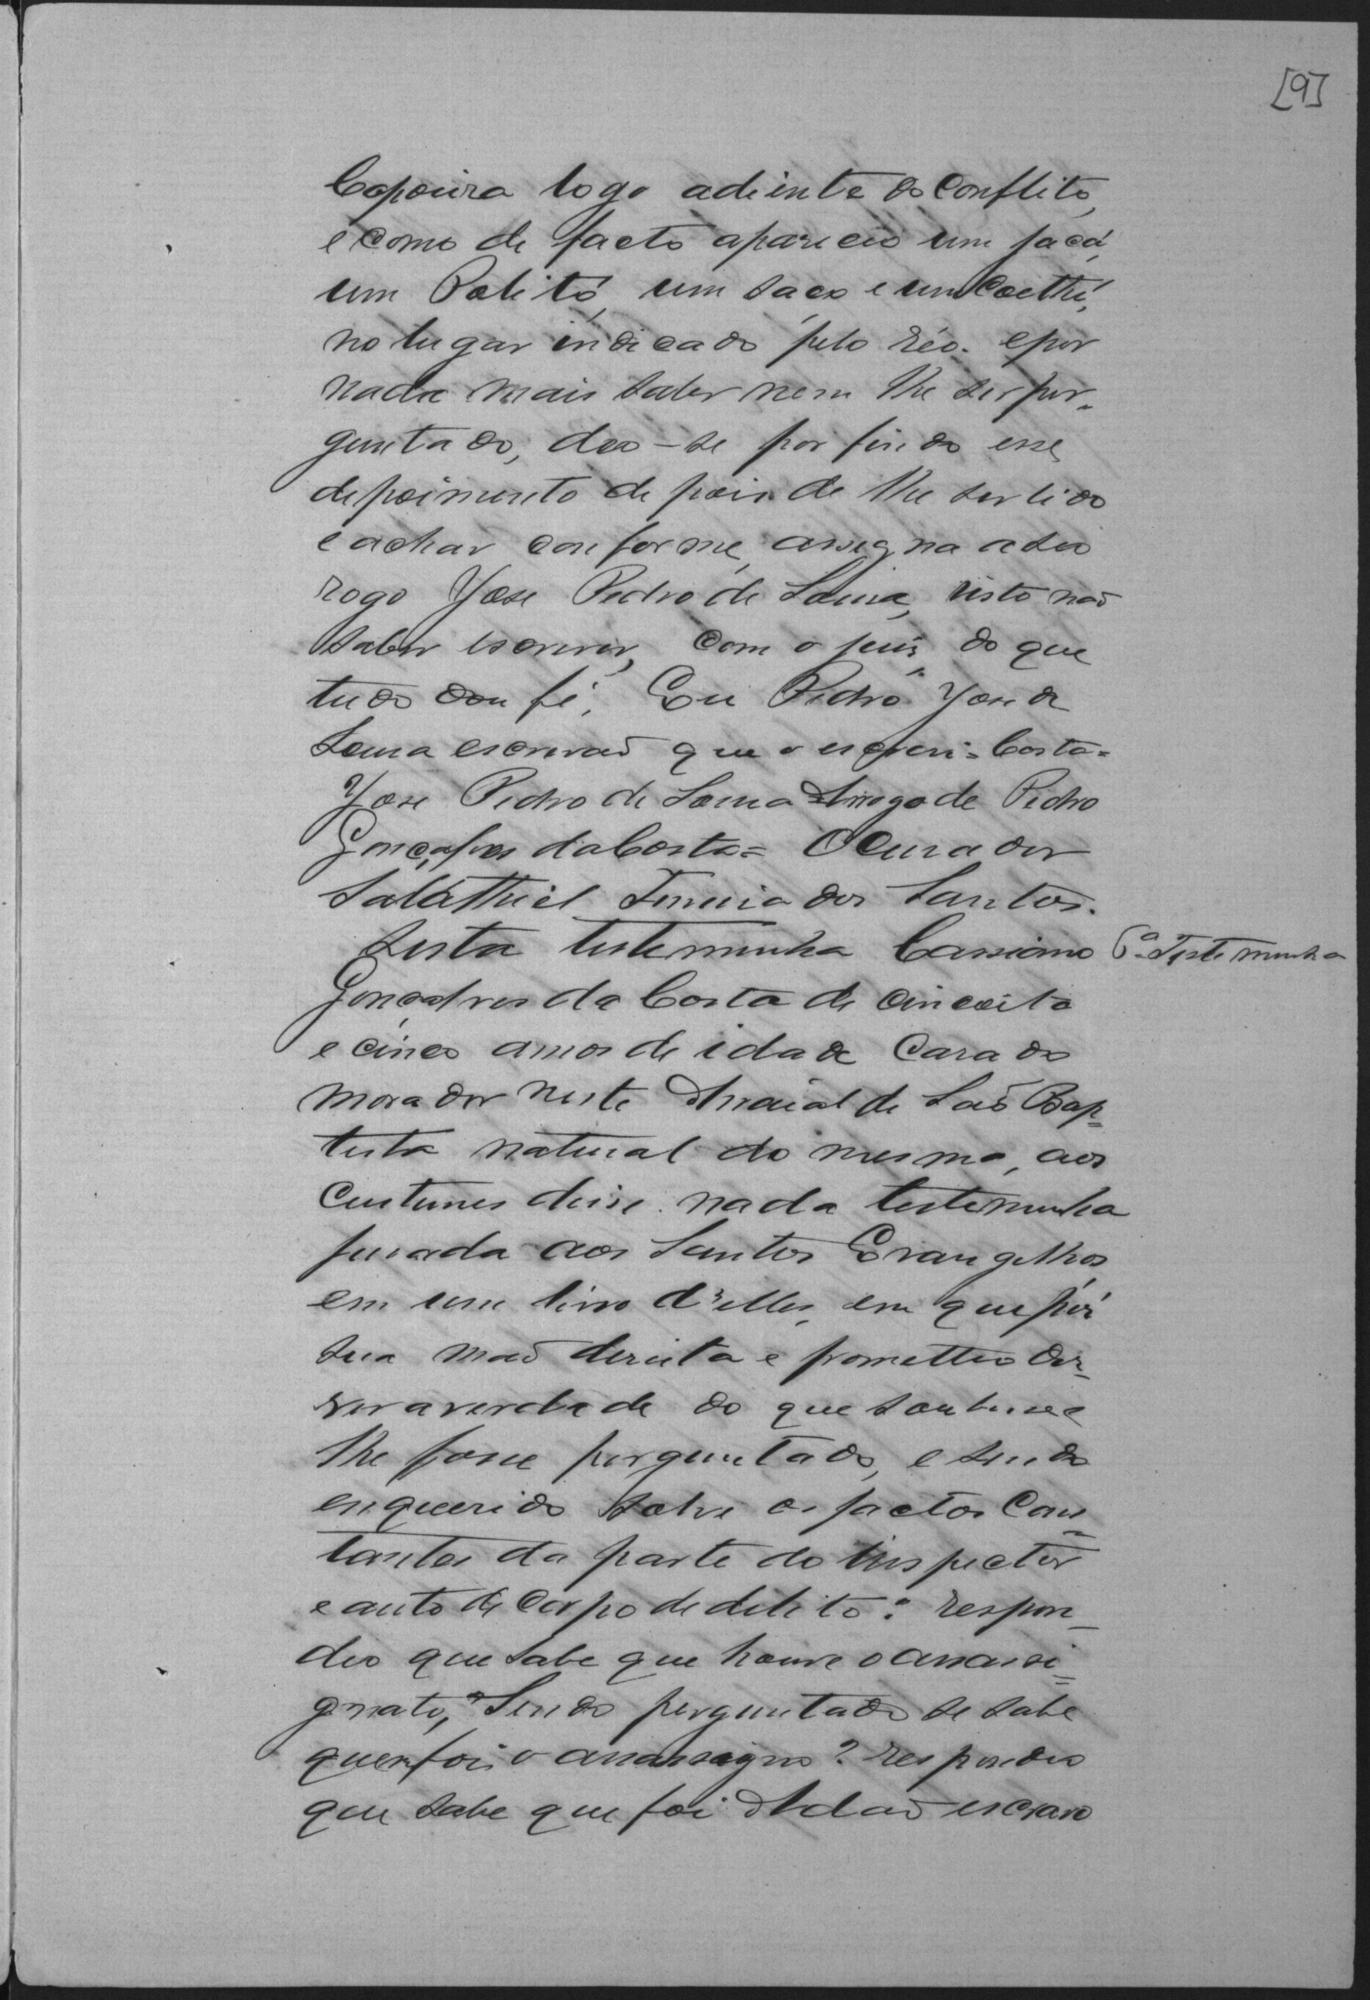 [9]
Capoeira logo adiente do Conflito,
e como de facto apareceo um jacá,
um Palitó, um saco e um Coethé,
no lugar indicado pelo réo. e por
nada mais saber nem lhe ser per-
guntado, deo-se por findo esse
depoimento depois de lhe ser lido
e achar conforme, assigna a seo
rogo Jose Pedro de Souza, visto não
saber escrever, com o juis, do que
tudo dou fé. Eu Pedro Jose de
Souza escrivaõ que o escrevi = Costa =
Jose Pedro de Souza Arrogo de Pedro
Gonçalves da Costa = O Curador
Salathiel Ferreira dos Santos.
Sesta testeminha Cassiano
6ª Testeminha
Gonçalves da Costa de cincoeita
e cinco annos de idade Casado
morador neste Arraial de Saõ Bap=
tista natural do mesmo, aos
Custumes disse nada testeminha
jurada aos Santos Evangelhos
em um livro d'elles, em que pôs
sua maõ dereita e prometteo di-
ser a verdade do que soubesse e
lhe fosse perguntado, e sendo
enquerido sobre os factos Cons
tantes da parte do Inspector
e auto de Corpo de delito: respon-
deo que sabe que houve o assassi=
gnato, Sendo perguntado se sabe
quem foi o assassigno? respondeo
que sabe que foi Adaõ escravo